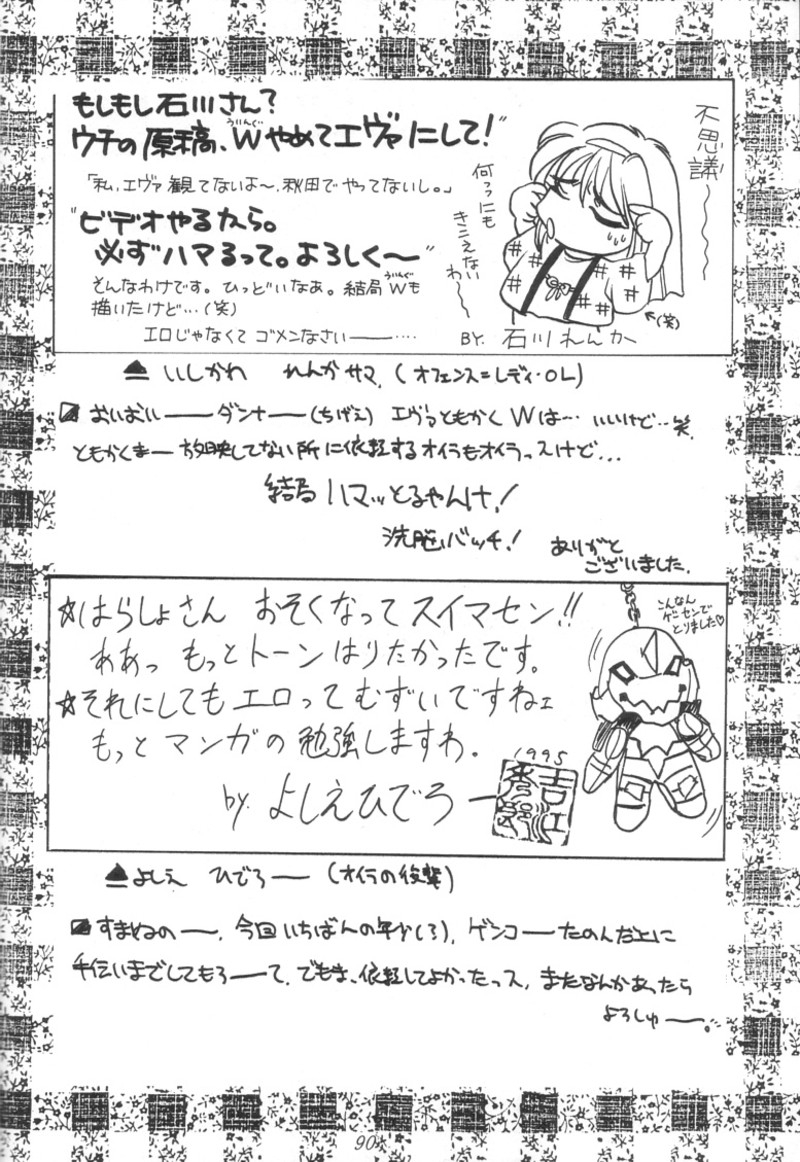 もしもし石川さん?
ウチの原稿、Wやめてエヴァにして!"
ういんぐ
「私、エヴァ観てないよ〜、秋田でやってないし。」
"ビデオやるから。
必ずハマるって。よろしく〜"
そんなわけです。ひっどいなあ。結局Wも
ういんぐ
描いたけど…(笑)
エロじゃなくてゴメンなさい――……
不思議〜〜
何っにも
きこえない
わ〜〜
←(笑)
BY. 石川れんか
▲ いしかわ れんかサマ (オフェンス=レディ・OL)
おいおい――ダンナ――(ちげえ) エヴァともかくWは… いいけど…笑
ともかくまー放映してない所に依頼するオイラもオイラっスけど…
結局ハマッとるやんけ!
洗脳バッチ!
ありがと
ございました.
☆はらしょさん おそくなってスイマセン!!
ああっ もっとトーンはりたかったです。
☆それにしてもエロってむずいですねェ
もっとマンガの勉強しますわ.
by. よしえひでろー
1995
こんなん
ゲーセンで
とりました♡
▲よしえ ひでろ― (オイラの後輩)
すまぬの――. 今回いちばんの年少(ろ), ゲンコ――たのんだ上に
手伝いまでしてもろ――て. でもま、依頼してよかったっス, またなんかあったら
よろしゅ――。
90